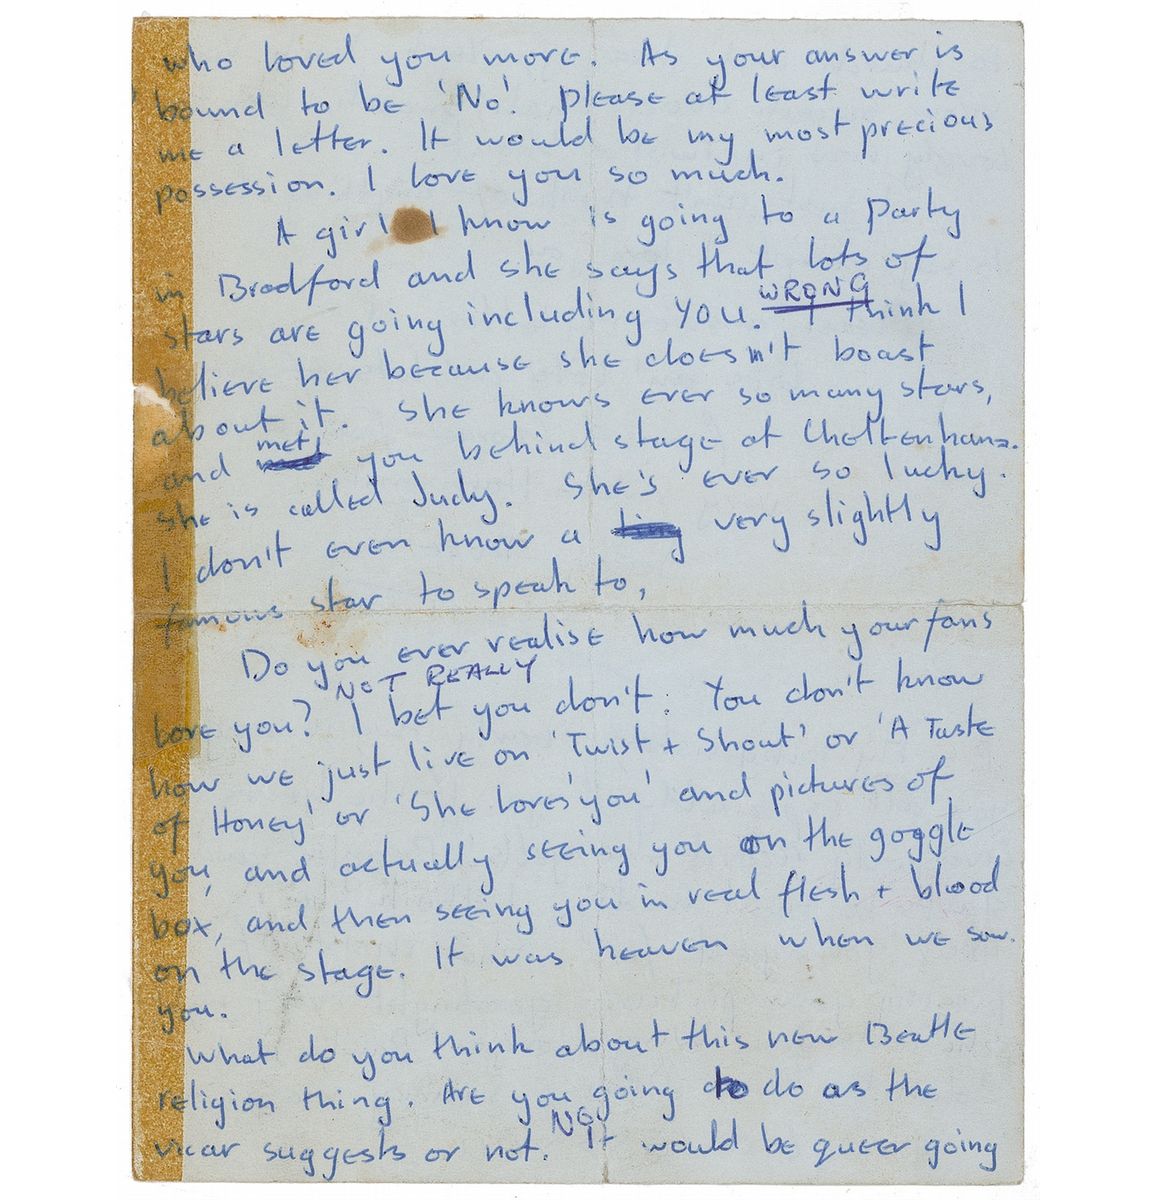 who loved you more. As your answer is
bound to be 'No'. please at least write
me a letter. It would be my most precious
possession. I love you so much.
A girl I know is going to a party
in Bradford and she says that lots of
WRONG
stars are going including YOU. I think I
believe her because she doesn't boast
about it. She knows ever so many stars,
met
and you behind stage at Cheltenham.
She is called Judy. She's ever so lucky.
I don't even know a very slightly
famous star to speak to,
Do you ever realise how much your fans
NOT REALLY
love you? I bet you don't. You don't know
how we just live on 'Twist + Shout' or 'A Taste
of Honey' or 'She loves you' and pictures of
you, and actually seeing you on the goggle
box, and then seeing you in real flesh + blood
on the stage. It was heaven when we saw
you.
What do you think about this new Beatle
religion thing. Are you going to do as the
NO
vicar suggests or not. It would be queer going